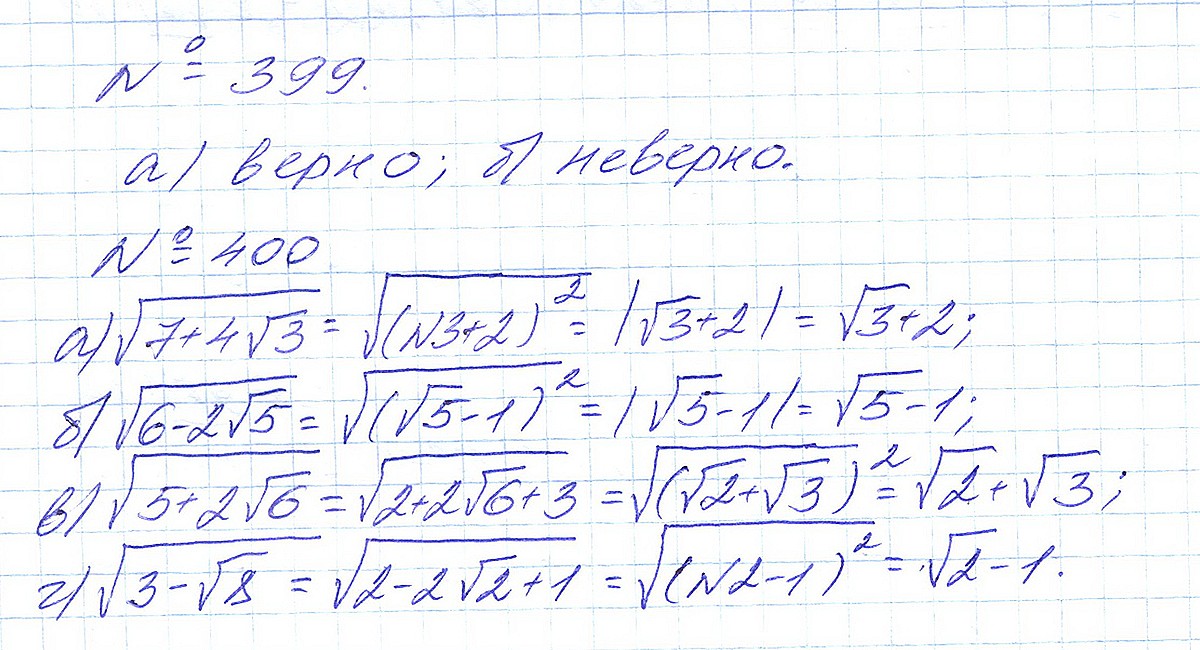 № 399.
а) верно; б) неверно.
№ 400
а) √(7+4√3) = √((√3+2)²) = |√3+2| = √3+2;
б) √(6-2√5) = √((√5-1)²) = |√5-1| = √5-1;
в) √(5+2√6) = √(2+2√6+3) = √((√2+√3)²) = √2+√3;
г) √(3-√8) = √(2-2√2+1) = √((√2-1)²) = √2-1.